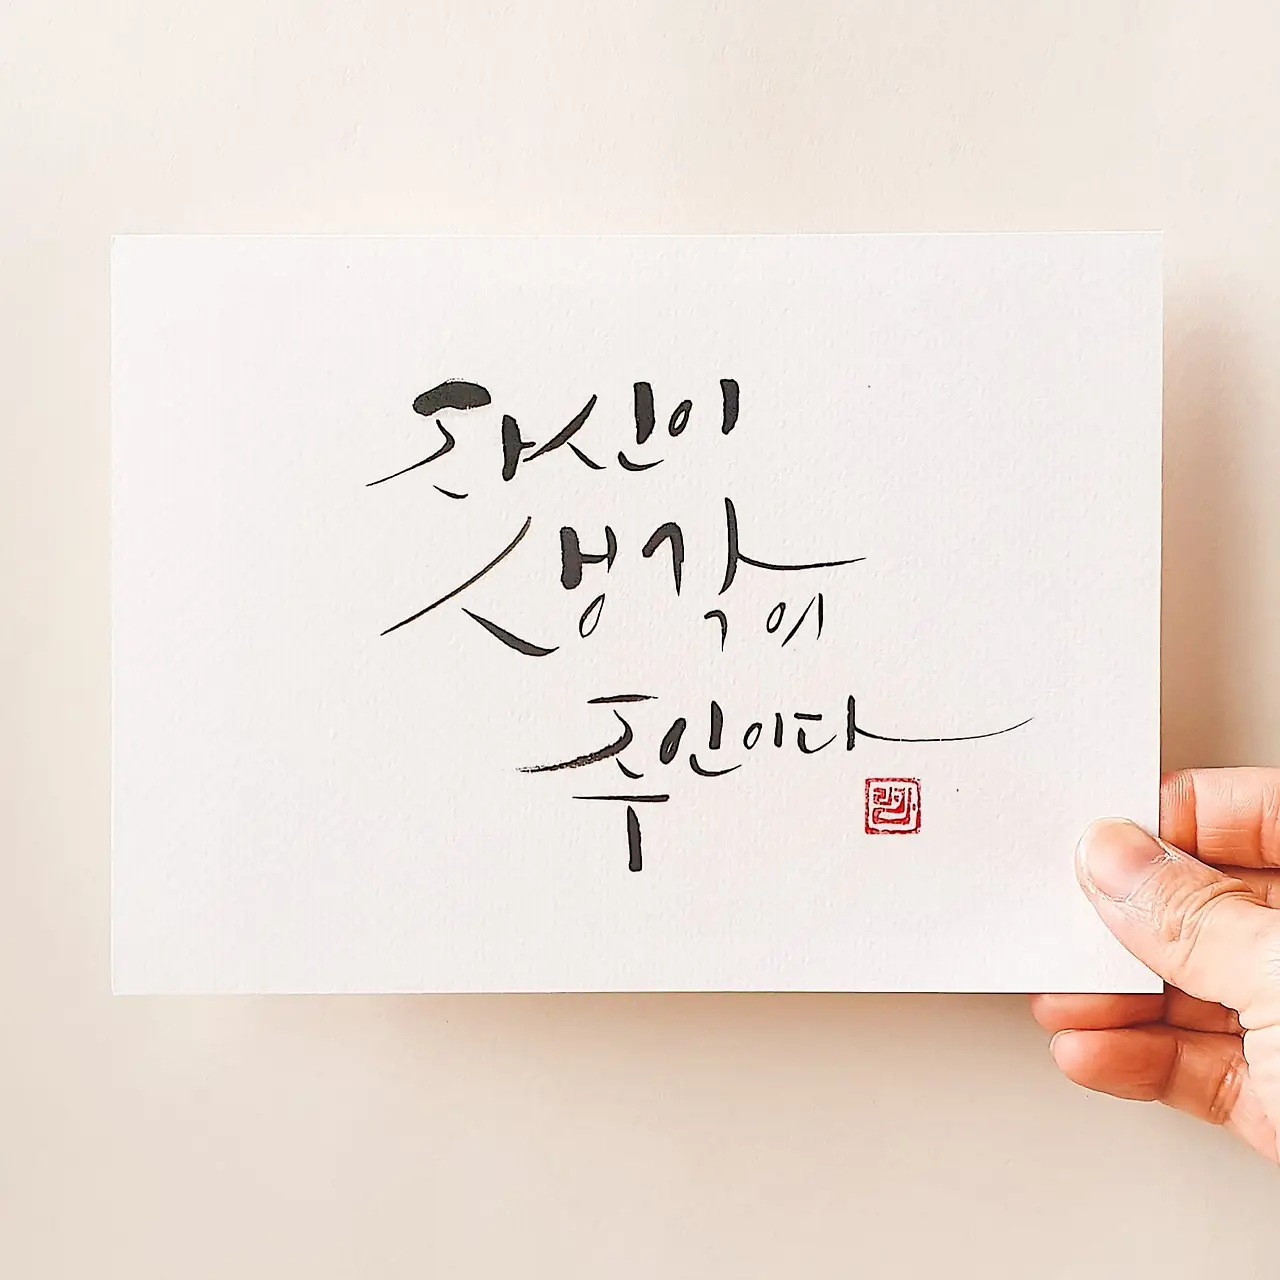 자신이
생각의
주인이다